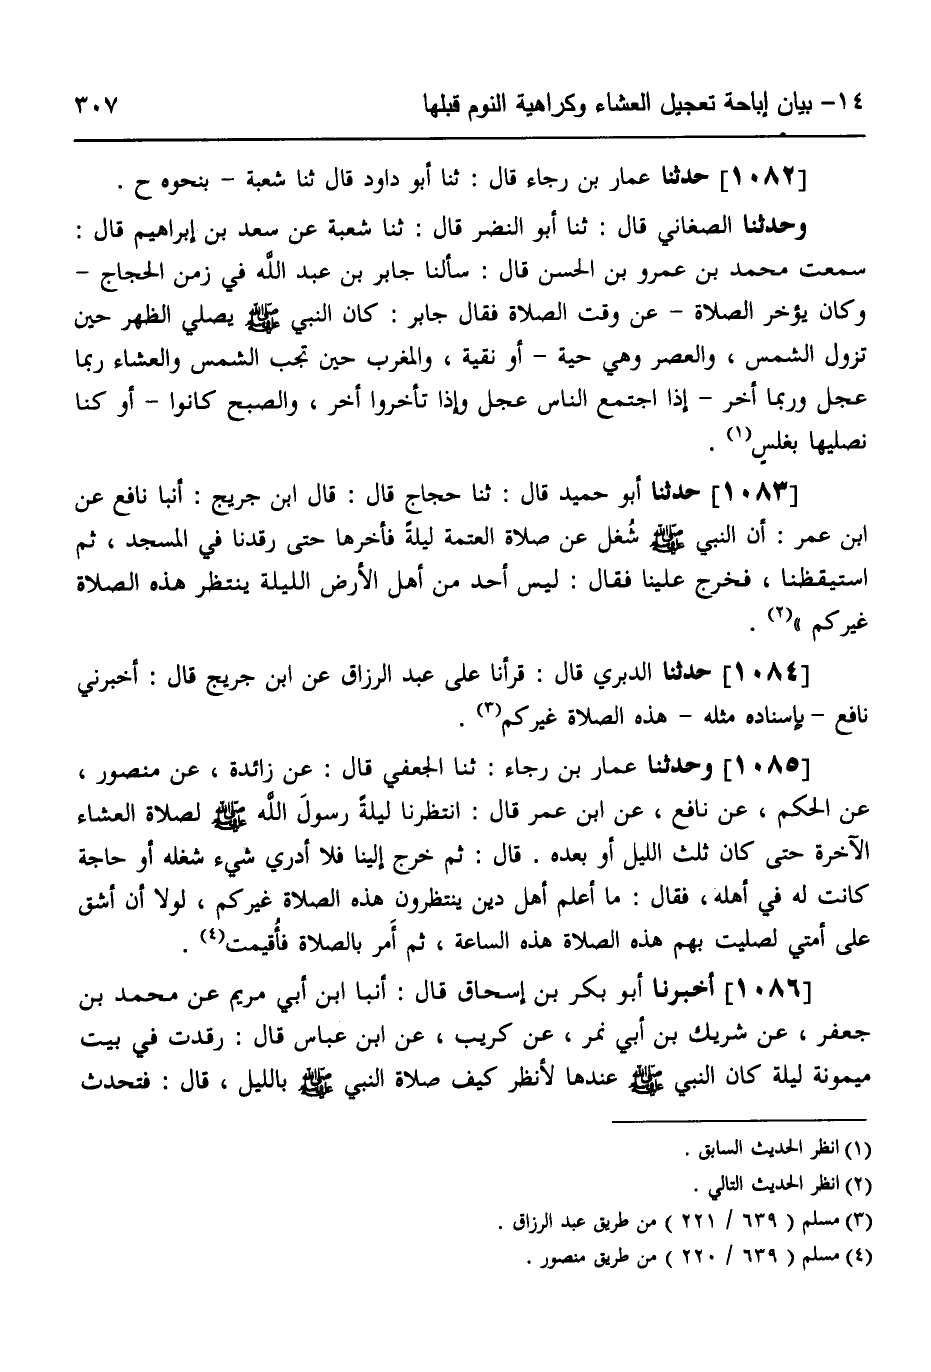 ١٤- بيان إباحة تعجيل العشاء وكراهية النوم قبلها ٣٠٧
[١٠٨٢] حدثنا عمار بن رجاء قال : ثنا أبو داود قال ثنا شعبة - بنحوه ح .
وحدثنا الصغاني قال : ثنا أبو النضر قال : ثنا شعبة عن سعد بن إبراهيم قال :
سمعت محمد بن عمرو بن الحسن قال : سألنا جابر بن عبد اللَّه في زمن الحجاج -
وكان يؤخر الصلاة - عن وقت الصلاة فقال جابر : كان النبي ﷺ يصلي الظهر حين
تزول الشمس ، والعصر وهي حية - أو نقية ، والمغرب حين تجب الشمس والعشاء ربما
عجل وربما أخر - إذا اجتمع الناس عجل وإذا تأخروا أخر ، والصبح كانوا - أو كنا
نصليها بغلسٍ(١) .
[١٠٨٣] حدثنا أبو حميد قال : ثنا حجاج قال : قال ابن جريج : أنبا نافع عن
ابن عمر : أن النبي ﷺ شُغل عن صلاة العتمة ليلةً فأخرها حتى رقدنا في المسجد ، ثم
استيقظنا ، فخرج علينا فقال : ليس أحد من أهل الأرض الليلة ينتظر هذه الصلاة
غيركم »(٢) .
[١٠٨٤] حدثنا الدبري قال : قرأنا على عبد الرزاق عن ابن جريج قال : أخبرني
نافع - بإسناده مثله - هذه الصلاة غيركم(٣) .
[١٠٨٥] وحدثنا عمار بن رجاء : ثنا الجعفي قال : عن زائدة ، عن منصور ،
عن الحكم ، عن نافع ، عن ابن عمر قال : انتظرنا ليلةً رسولَ اللَّه ﷺ لصلاة العشاء
الآخرة حتى كان ثلث الليل أو بعده . قال : ثم خرج إلينا فلا أدري شيء شغله أو حاجة
كانت له في أهله، فقال : ما أعلم أهل دين ينتظرون هذه الصلاة غيركم ، لولا أن أشق
على أمتي لصليت بهم هذه الصلاة هذه الساعة ، ثم أَمر بالصلاة فأُقيمت(٤) .
[١٠٨٦] أخبرنا أبو بكر بن إسحاق قال : أنبا ابن أبي مريم عن محمد بن
جعفر ، عن شريك بن أبي نمر ، عن كريب ، عن ابن عباس قال : رقدت في بيت
ميمونة ليلة كان النبي ﷺ عندها لأنظر كيف صلاة النبي ﷺ بالليل ، قال : فتحدث
(١) انظر الحديث السابق .
(٢) انظر الحديث التالي .
(٣) مسلم ( ٦٣٩ / ٢٢١ ) من طريق عبد الرزاق .
(٤) مسلم ( ٦٣٩ / ٢٢٠ ) من طريق منصور .